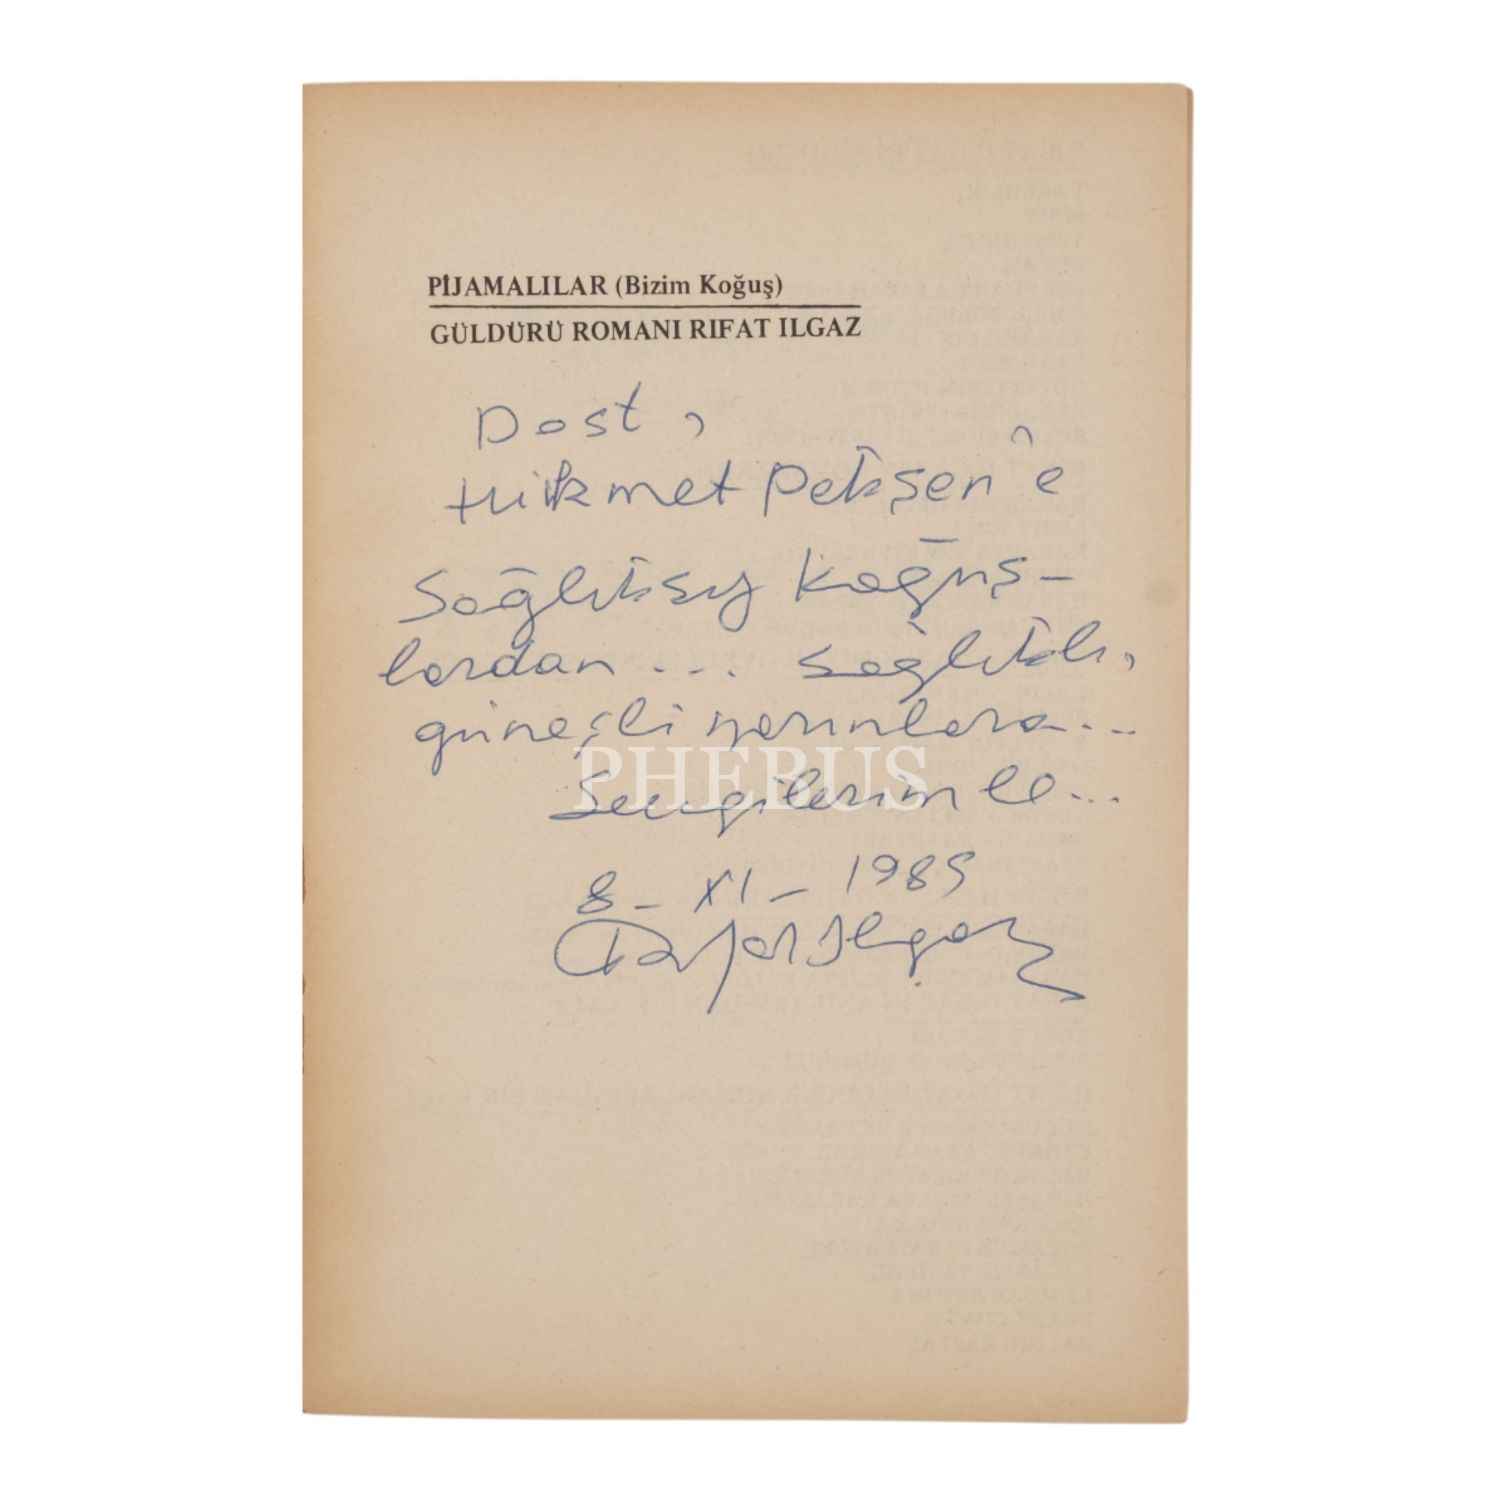 PİJAMALILAR (Bizim Koğuş)
GÜLDÜRÜ ROMANI RIFAT ILGAZ
Dost,
Hikmet Pekşen'e
Sağlıksız Koğuş-
lardan... Sağlıklı,
güneşli yarınlara...
Sevgilerimle...
8-XI-1985
Rıfat Ilgaz
PHEBUS